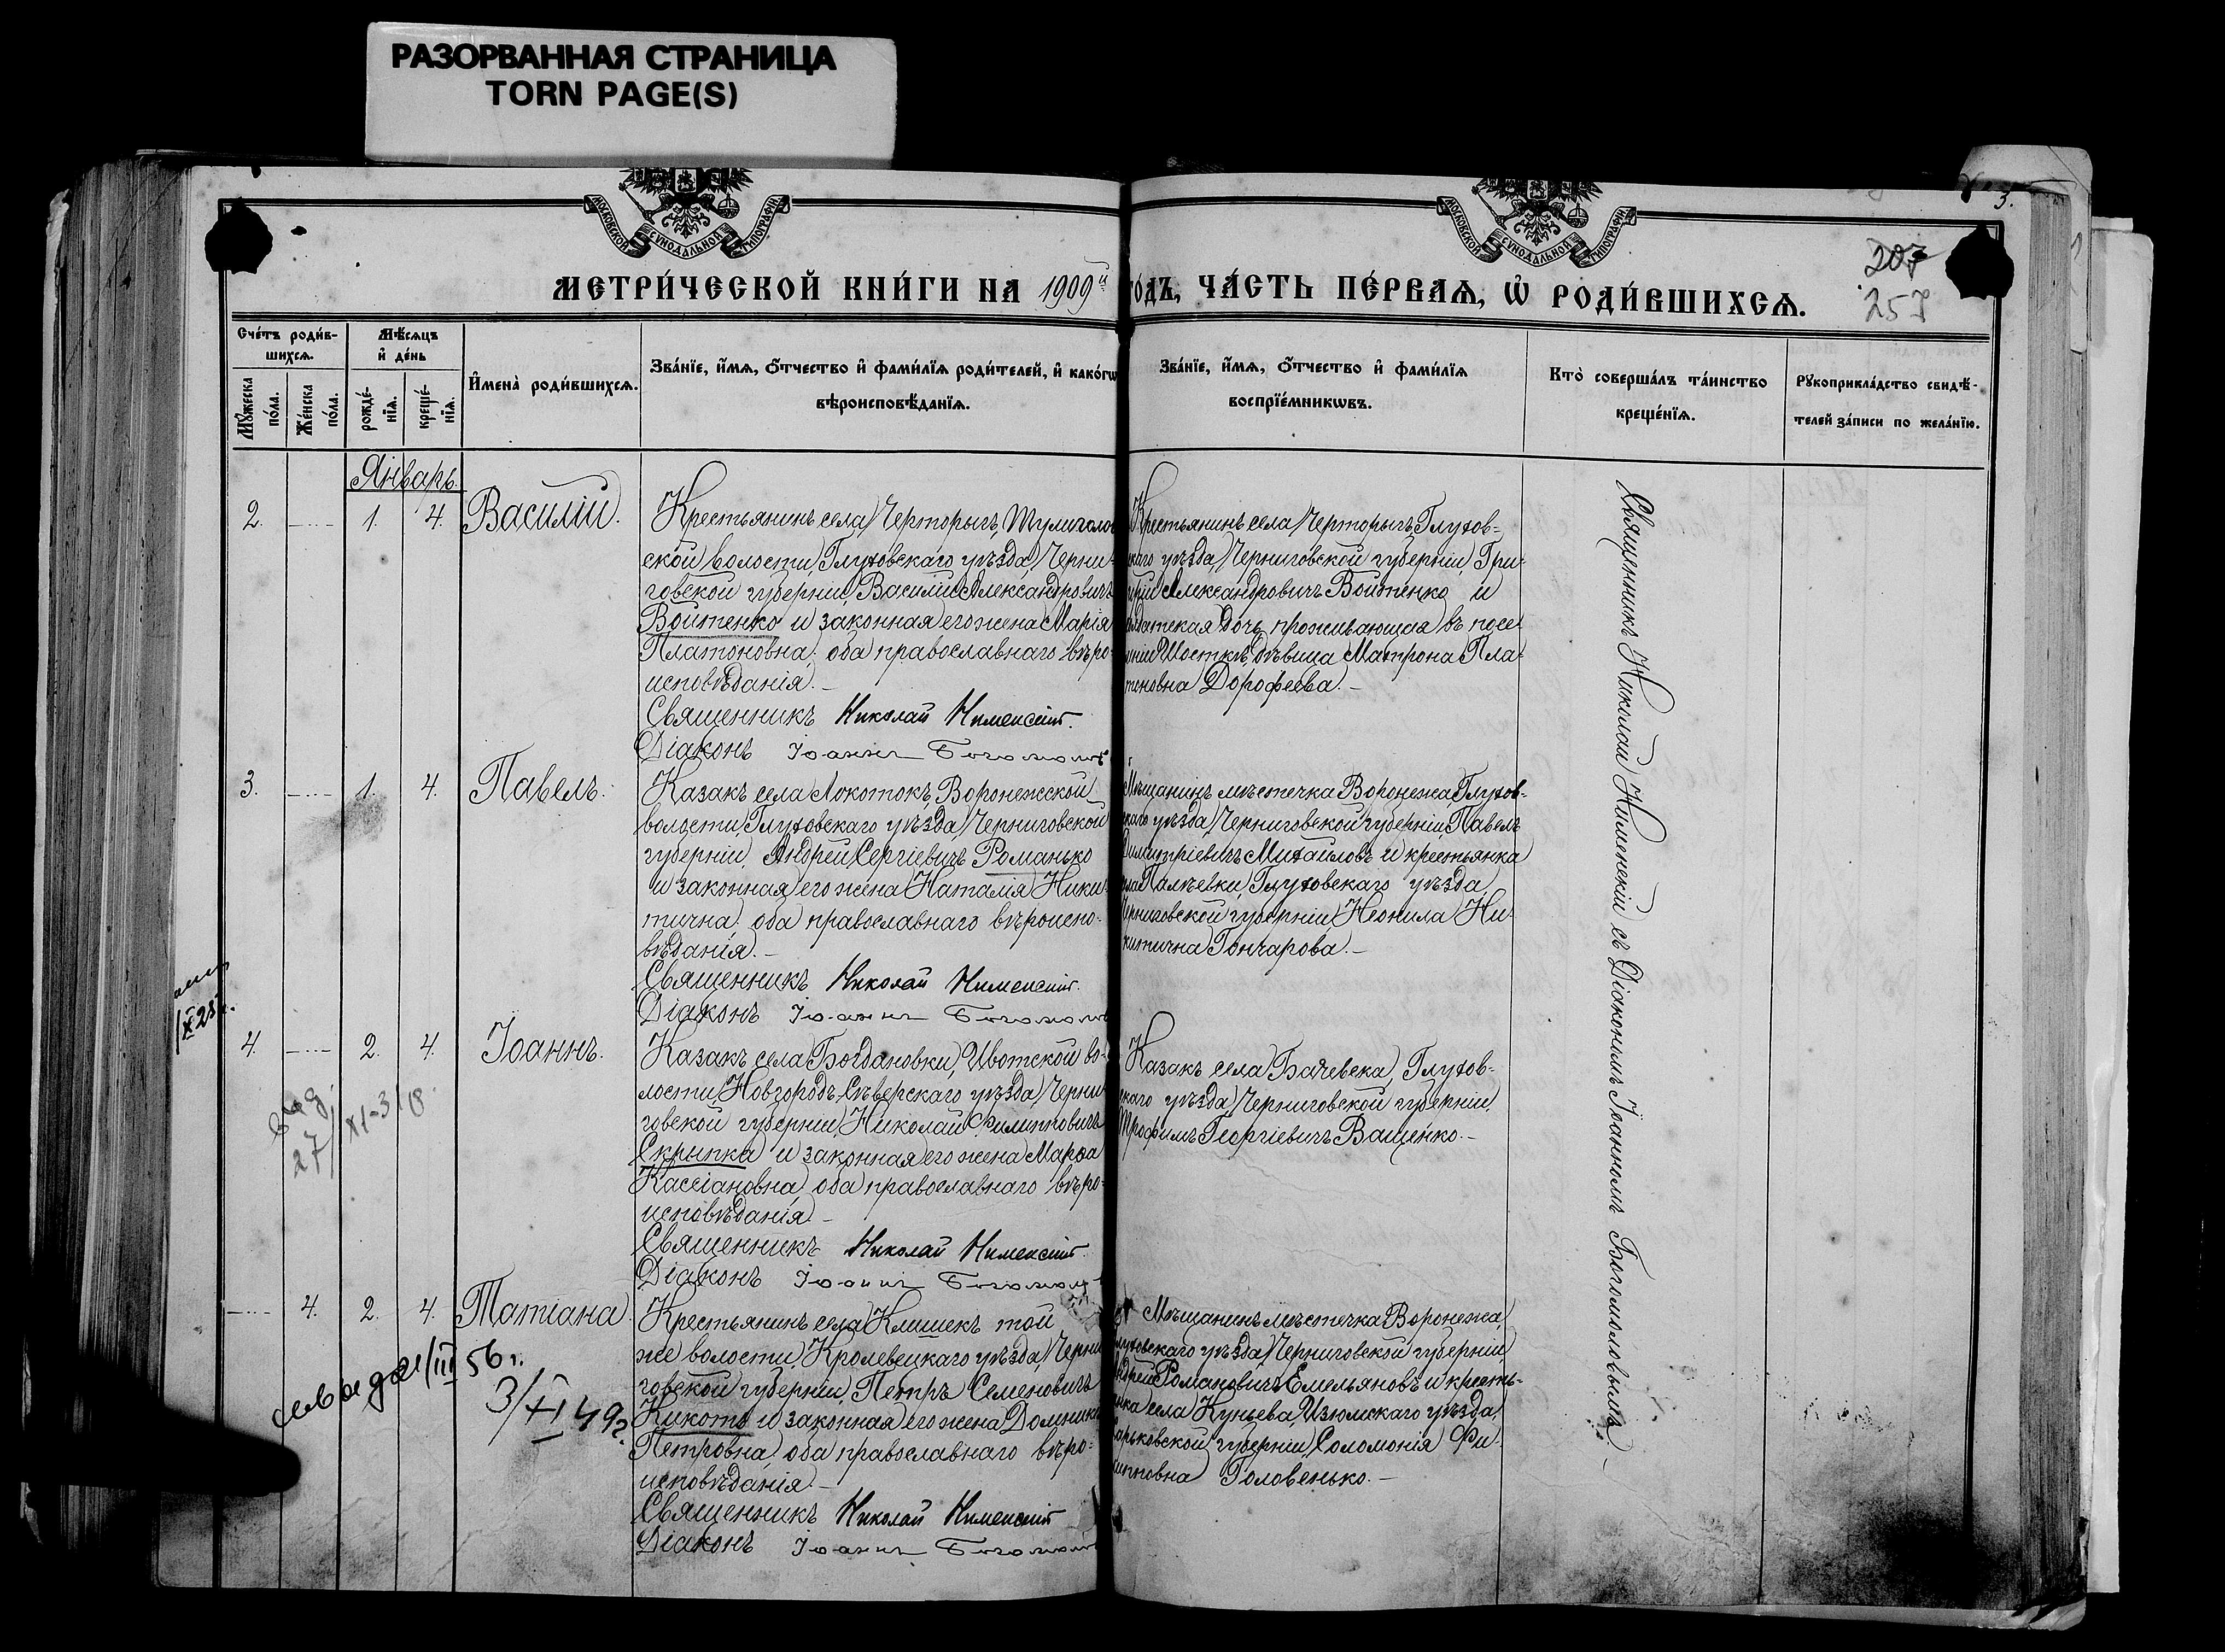 РАЗОРВАННАЯ СТРАНИЦА
TORN PAGE(S)
МОСКОВСКОЙ СѴНОДАЛЬНОЙ ТИПОГРАФІИ
МОСКОВСКОЙ СѴНОДАЛЬНОЙ ТИПОГРАФІИ
3.
207
257
МЕТРИ́ЧЕСКОЙ КНИ́ГИ НА 1909й
го́дъ, ЧА́СТЬ ПЕ́РВАѦ, Ѡ҆ РОДИ́ВШИХСѦ.
Сче́тъ роди́в-
шихсѧ.
Мѹ́жеска по́ла.
Же́нска по́ла.
Мѣ́сѧцъ
и҆ де́нь
рожде́-
нїѧ.
креще́-
нїѧ.
И҆мена̀ роди́вшихсѧ.
Зва́нїе, и҆́мѧ, ѻ҆́тчество и҆ фами́лїѧ роди́телей, и҆ како́гѡ
вѣроисповѣ́данїѧ.
Зва́нїе, и҆́мѧ, ѻ҆́тчество и҆ фами́лїѧ
воспрїе́мникѡвъ.
Кто̀ соверша́лъ та́инство
креще́нїѧ.
Рѹкоприкла́дство свидѣ́-
телей за́писи по жела́нїю.
Январь.
2. 1. 4. Василій.
Крестьянинъ села Черторыгъ, Тулиголов
ской волости, Глуховскаго уѣзда, Черни-
говской губерніи, Василій Александровичъ
Войтенко и законная его жена Марія
Платоновна, оба православнаго вѣро-
исповѣданія.-
Священникъ Николай
Діаконъ Іоаннъ
Крестьянинъ села Черторыгъ, Глухов-
скаго уѣзда, Черниговской губерніи, Гри-
горій Александровичъ Войтенко и
солдатская дочь, проживающая въ посе-
леніи Шосткѣ, дѣвица Матрона Пла-
тоновна Дорофеева.-
3. 1. 4. Павелъ.
Казакъ села Локотокъ, Воронежской
волости, Глуховскаго уѣзда, Черниговской
губерніи, Андрей Сергіевичъ Романько
и законная его жена Наталія Ники-
тична, оба православнаго вѣроиспо-
вѣданія.-
Священникъ Николай
Діаконъ Іоаннъ
Мѣщанинъ мѣстечка Воронежа, Глухов-
скаго уѣзда, Черниговской губерніи, Павелъ
Димитріевичъ Михайловъ и крестьянка
села Палѣевки, Глуховскаго уѣзда,
Черниговской губерніи, Неонила Ни-
китична Гончарова.-
4. 2. 4. Іоаннъ.
Казакъ села Богдановки, Ивотской во-
лости, Новгородъ-Сѣверскаго уѣзда, Черни-
говской губерніи, Николай Филипповичъ
Скрыпка и законная его жена Марѳа
Кассіановна, оба православнаго вѣро-
исповѣданія.-
Священникъ Николай
Діаконъ Іоаннъ
Казакъ села Бачевска, Глухов-
скаго уѣзда, Черниговской губерніи,
Трофимъ Георгіевичъ Ващенко.-
27/XI-31
4. 2. 4. Татіана.
Крестьянинъ села Клишекъ, той
же волости, Кролевецкаго уѣзда, Черни-
говской губерніи, Петръ Семеновичъ
Кикоть и законная его жена Домникія
Петровна, оба православнаго вѣро-
исповѣданія.-
Священникъ Николай
Діаконъ Іоаннъ
Мѣщанинъ мѣстечка Воронежа,
Глуховскаго уѣзда, Черниговской губерніи,
Андрей Романовичъ Емельяновъ и кресть-
янка села Куньева, Изюмскаго уѣзда,
Харьковской губерніи, Соломонія Фи-
липповна Головенько.-
56 г.
3/XI 49 г.
Священникъ Николай Нименскій съ Діакономъ Іоанномъ Богомоловымъ.